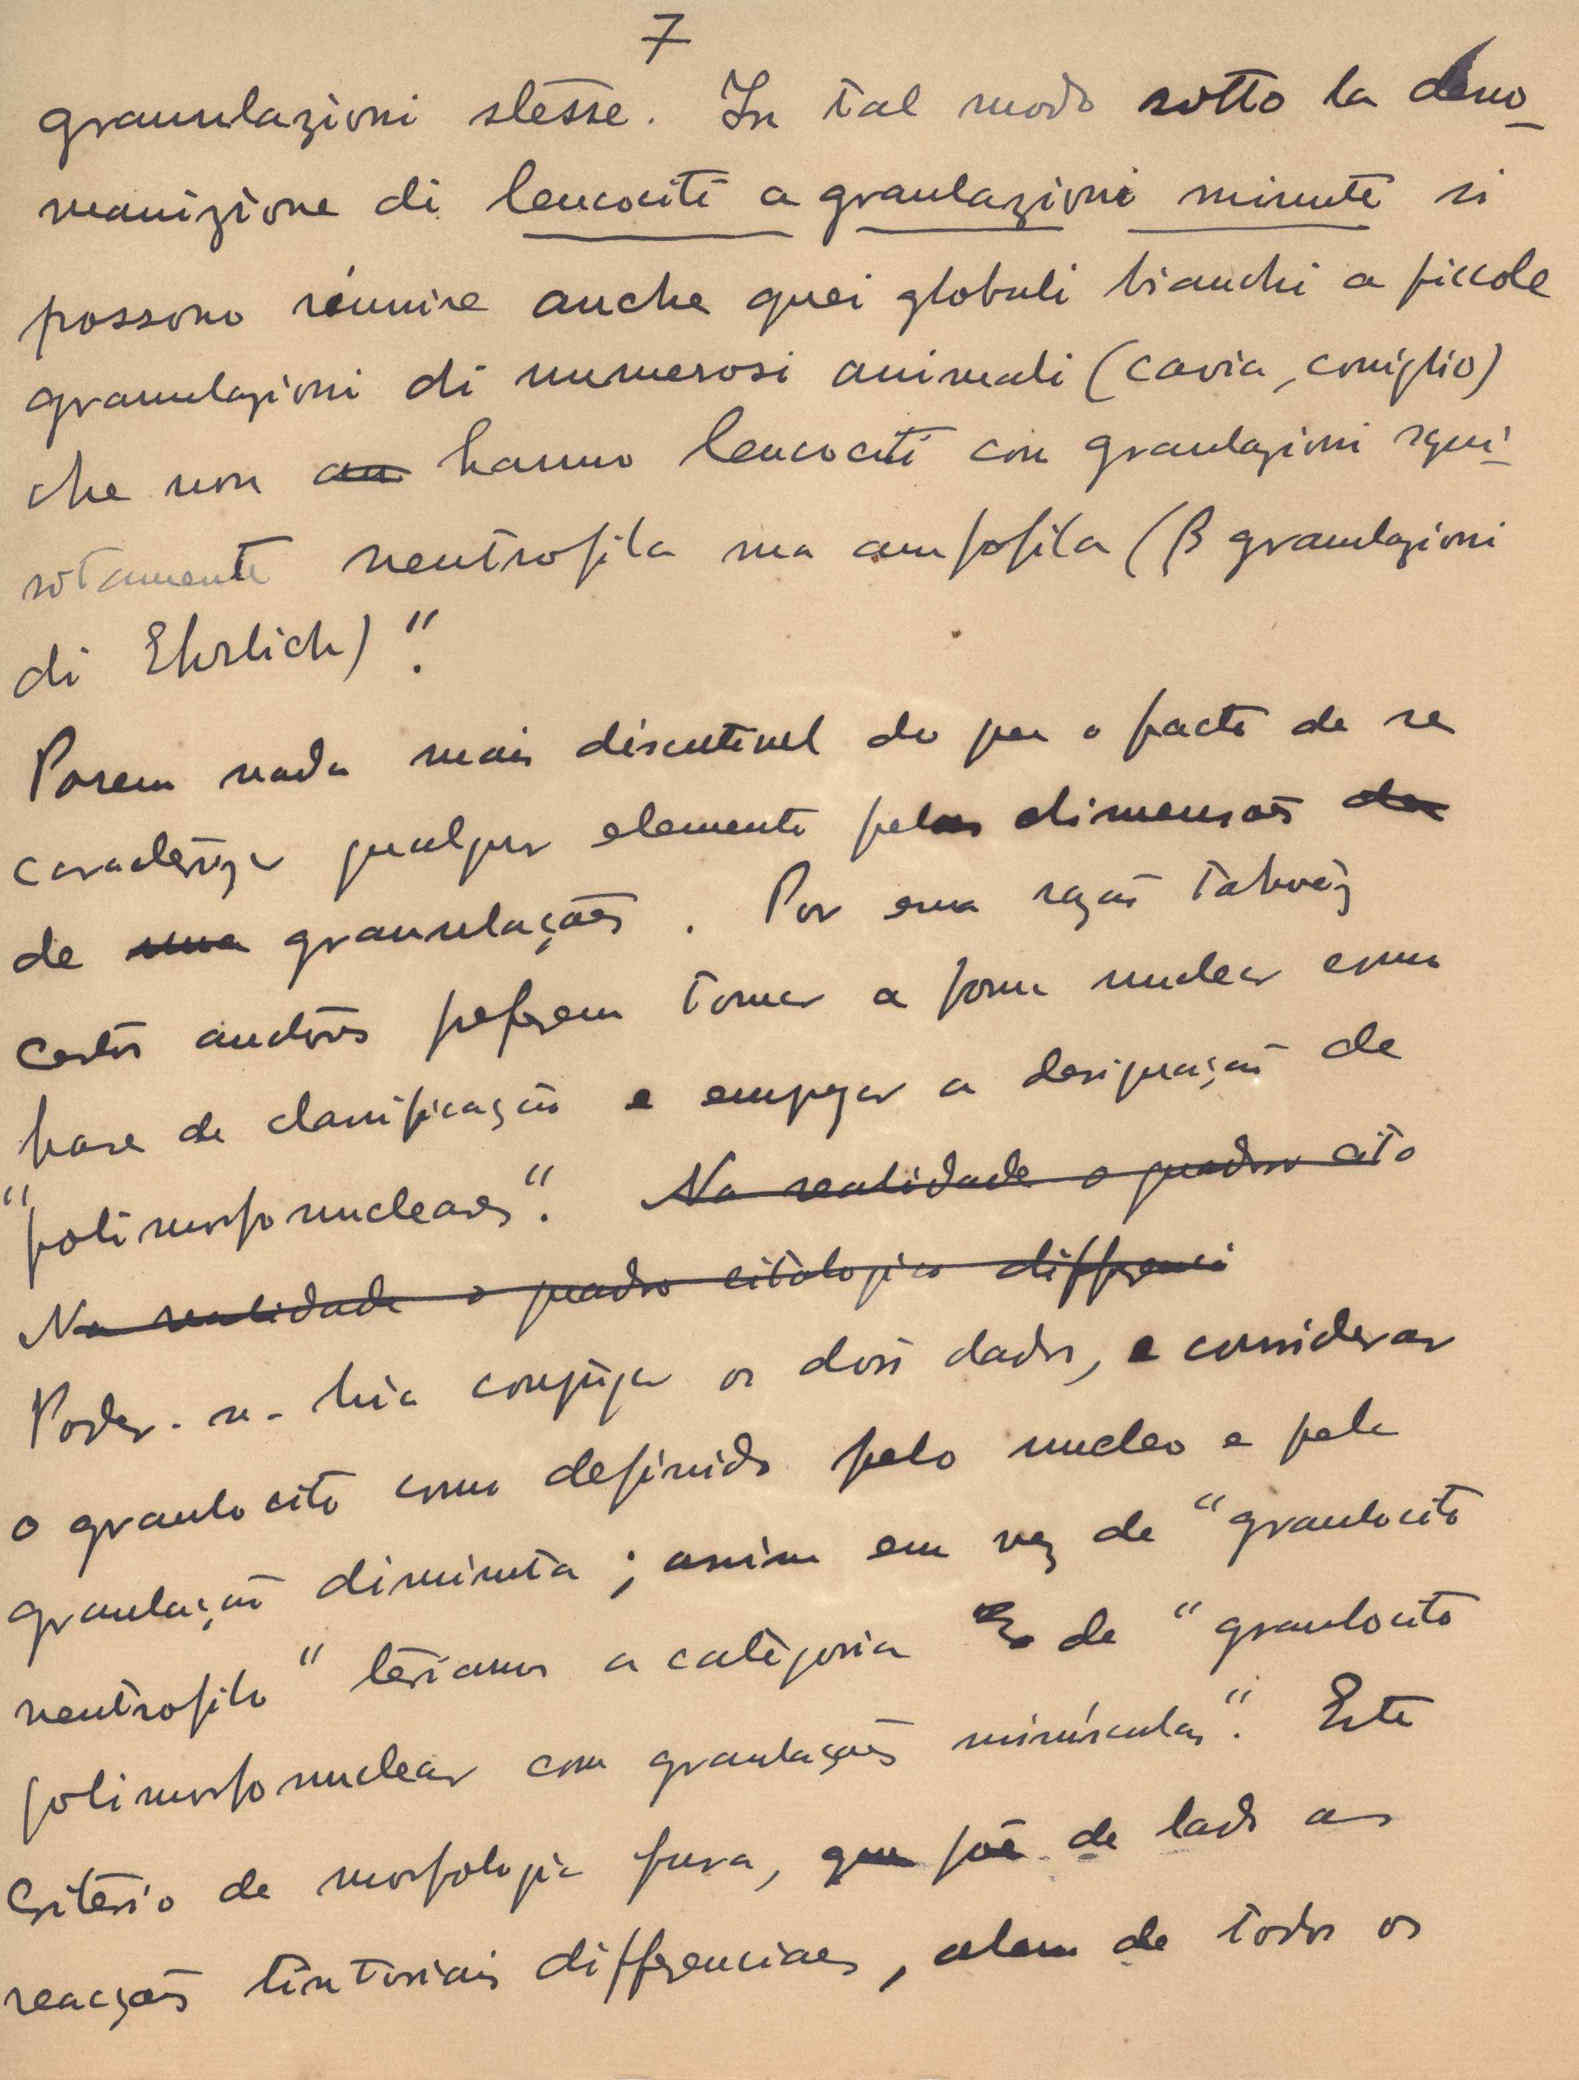 7
granulazioni stesse. In tal modo sotto la deno-
manizione di leucociti a granlazioni minute si
possono riunire anche quei globuli bianchi a piccole
granulazioni di numerosi animali (cavia, coniglio)
che non an hanno leucociti con granlazioni squi-
sitamente neutrofila ma amfofila (β granulazioni
di Ehrlich)".
Porem nada mais discutivel do que o facto de se
caracterizar qualquer elemento pelas dimensões da
de uma granulações. Por essa razão talvez
certos auctores preferem tomar a forma nuclear como
base de classificação e empregar a designação de
"polimorfonucleares". Na realidade o quadro cito
Na realidade o quadro citologico differenci
Poder-se-hia conjugar os dois dados, e considerar
o granulocito como definido pelo nucleo e pela
granulação diminuta; assim em vez de "granulocito
neutrofilo" teriamos a categoria de "granulocito
polimorfonuclear com granulações minúsculas". Este
criterio de morfologia pura, que põe de lado as
reacções tintoriais differenciaes, alem de todos os